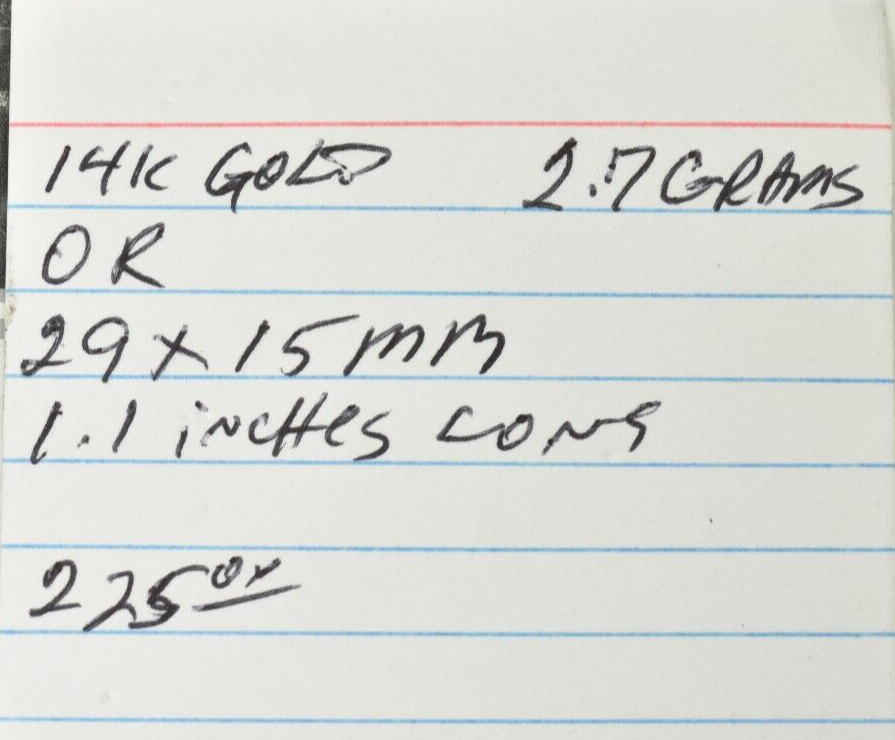 14K GOLD 2.7 GRAMS
OR
29 x 15 mm
1.1 inCHes LONG
225